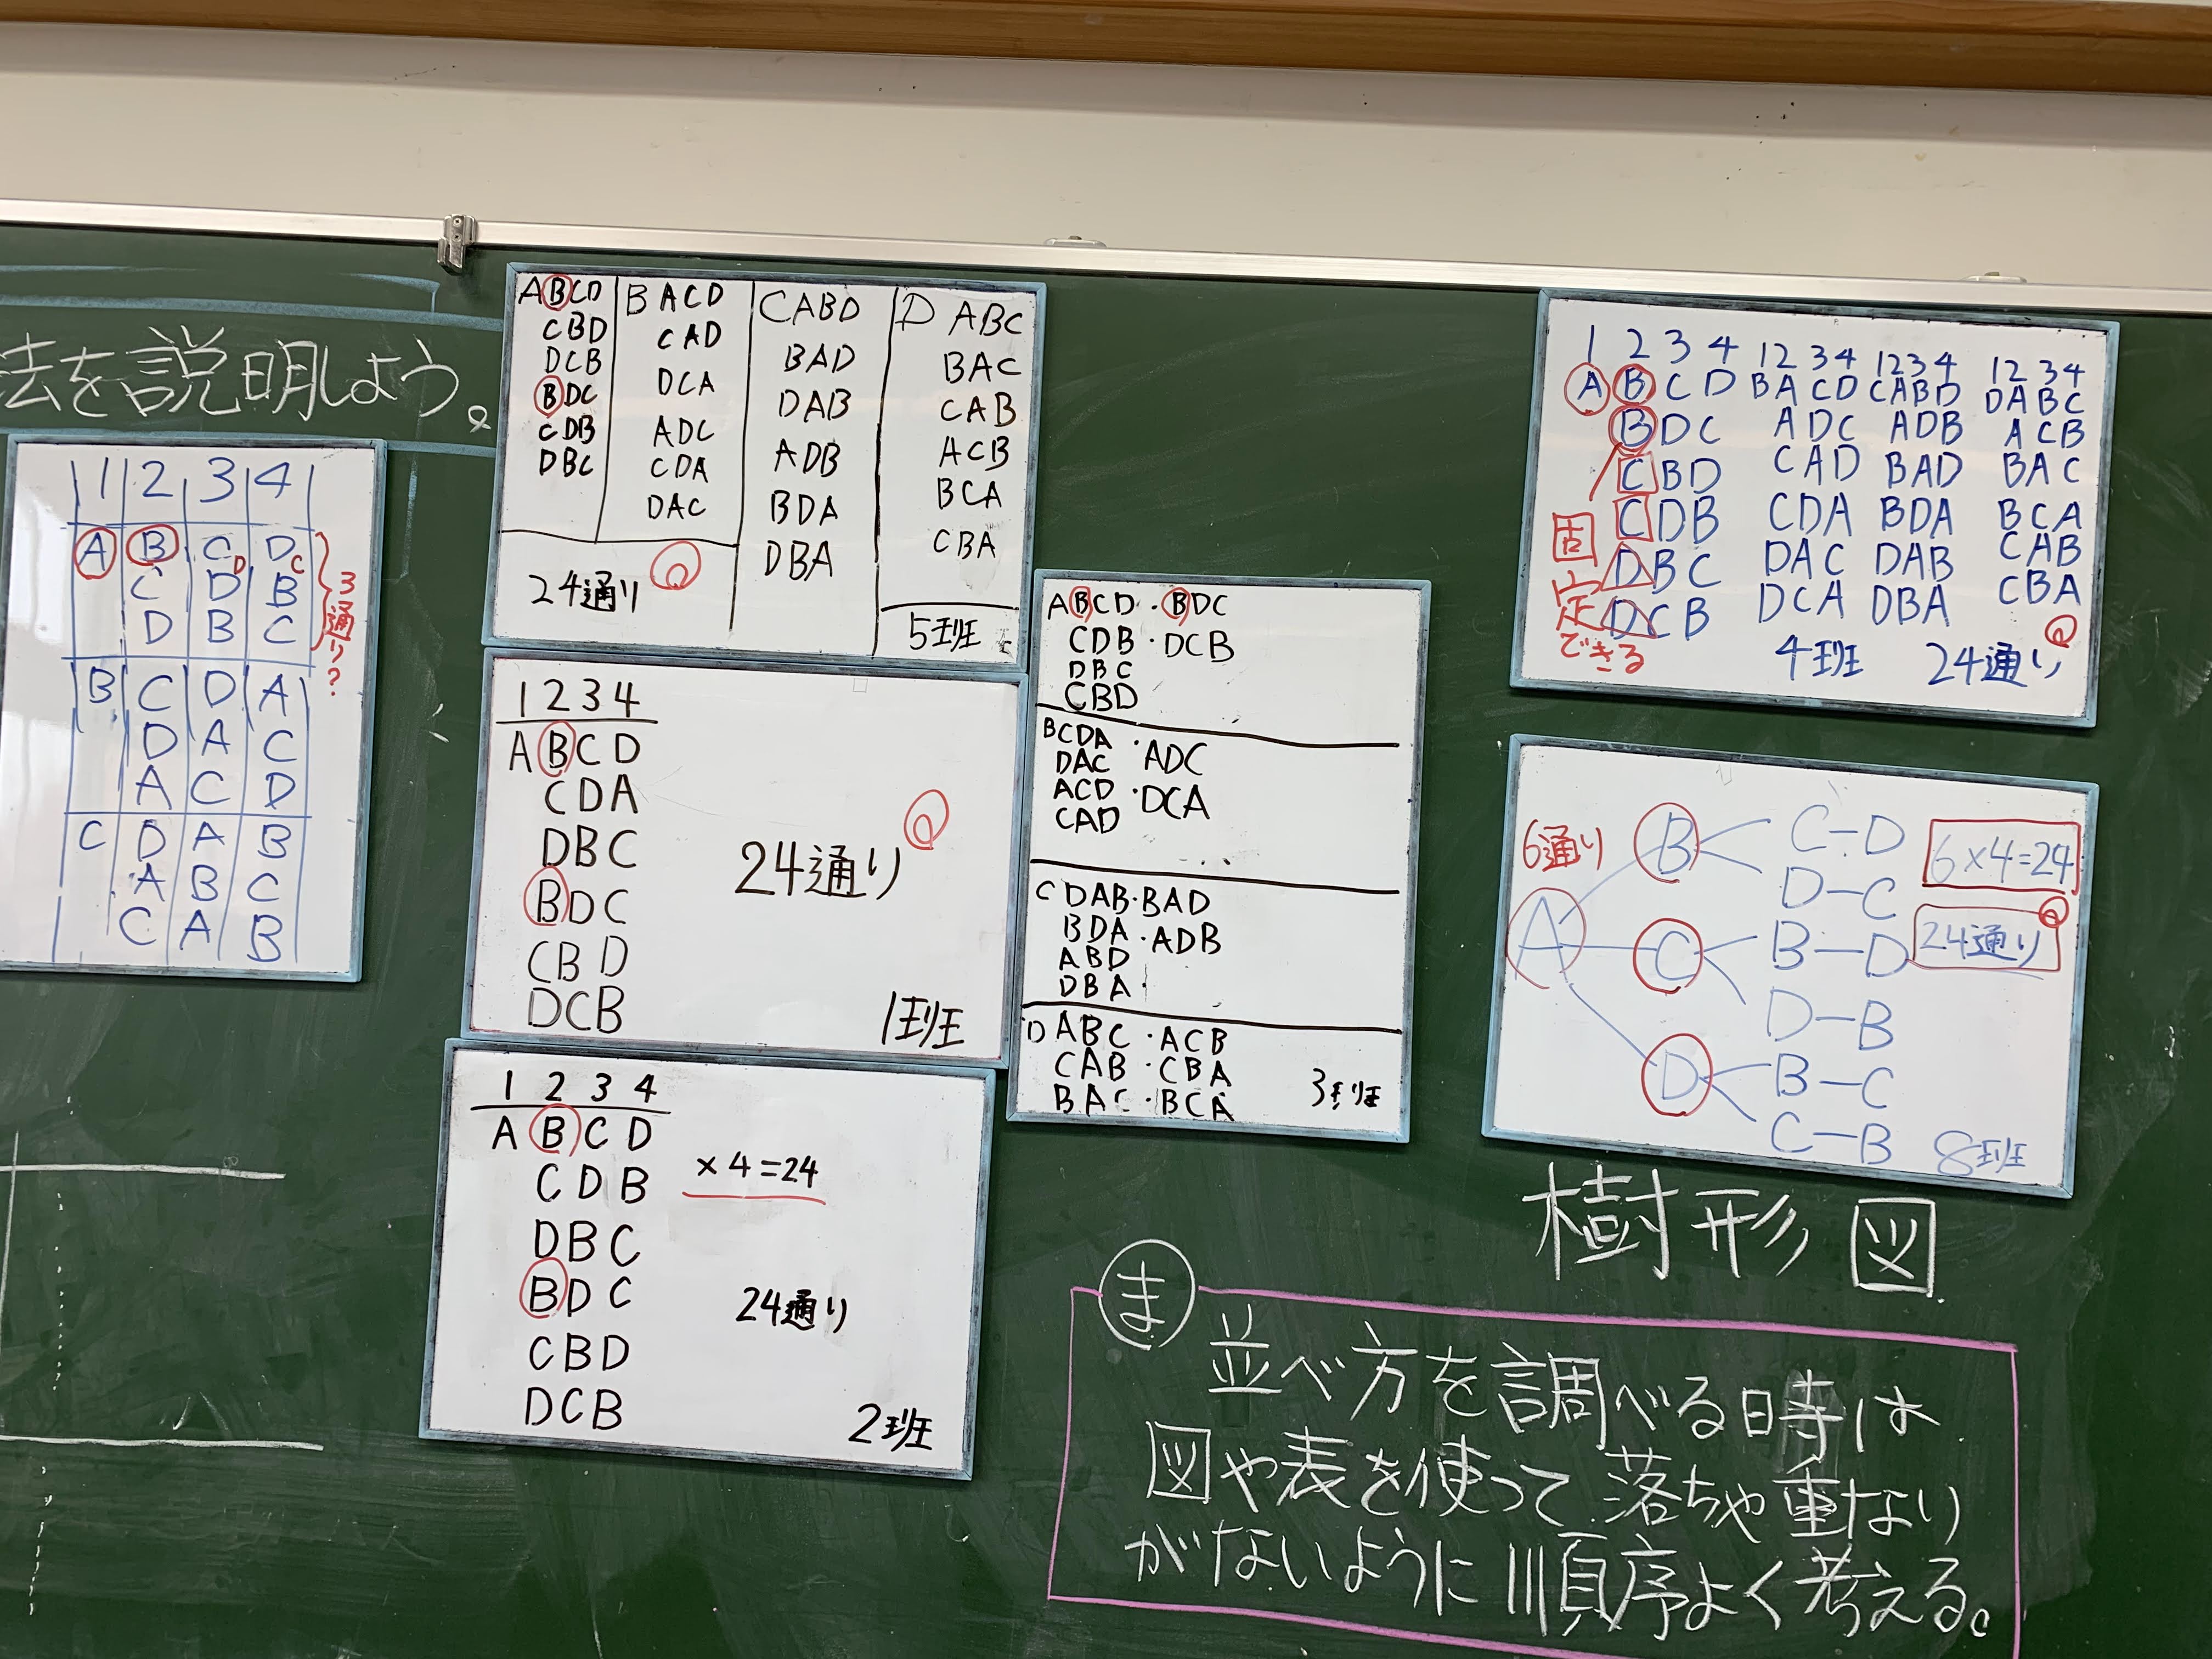 法を説明しよう。
1 2 3 4
A B C D
D C
C D B
D B C
3通り?
B C D A
D A C
A C D
C D A B
A B C
C A B
ABCD
CBD
DCB
BDC
CDB
DBC
B ACD
CAD
DCA
ADC
CDA
DAC
CABD
BAD
DAB
ADB
BDA
DBA
D ABC
BAC
CAB
ACB
BCA
CBA
24通り
5班
1 2 3 4
A B C D
C D A
D B C
B D C
C B D
D C B
24通り
1班
1 2 3 4
A B C D
C D B
D B C
B D C
C B D
D C B
×4=24
24通り
2班
ABCD・BDC
CDB・DCB
DBC
CBD
BCDA・ADC
DAC
ACD・DCA
CAD
CDAB・BAD
BDA・ADB
ABD
DBA・
DABC・ACB
CAB・CBA
BAC・BCA
3班
1 2 3 4 1 2 3 4 1 2 3 4 1 2 3 4
A B C D B A C D C A B D D A B C
B D C A D C A D B A C B
C B D C A D B A D B A C
C D B C D A B D A B C A
D B C D A C D A B C A B
D C B D C A D B A C B A
固定できる
4班 24通り
6通り
A
B
C－D
D－C
C
B－D
D－B
D
B－C
C－B
6×4=24
24通り
8班
樹形図
ま
並べ方を調べる時は
図や表を使って落ちや重なり
がないように順序よく考える。